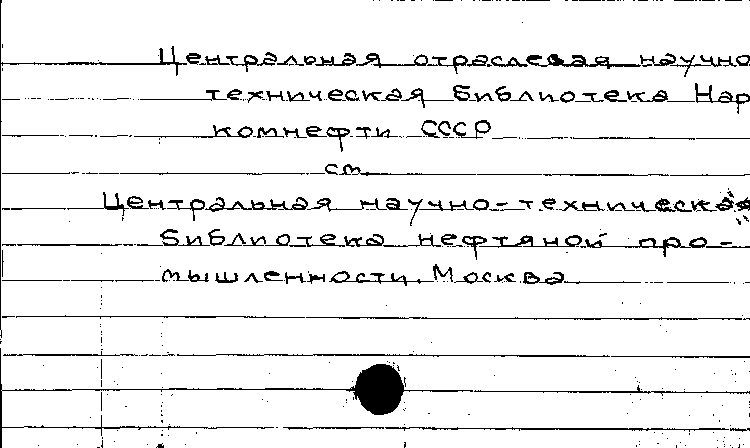 Центральная отраслевая научно
техническая библиотека Нар
комнефти СССР
см.
Центральная научно-техническая
библиотека нефтяной про-
мышленности. Москва